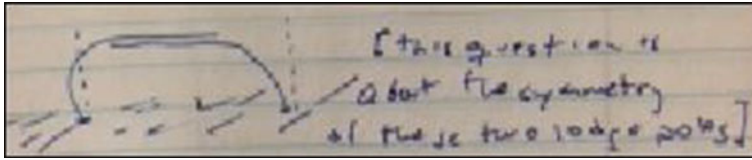 [this question is
about the symmetry
of these two lodge poles]